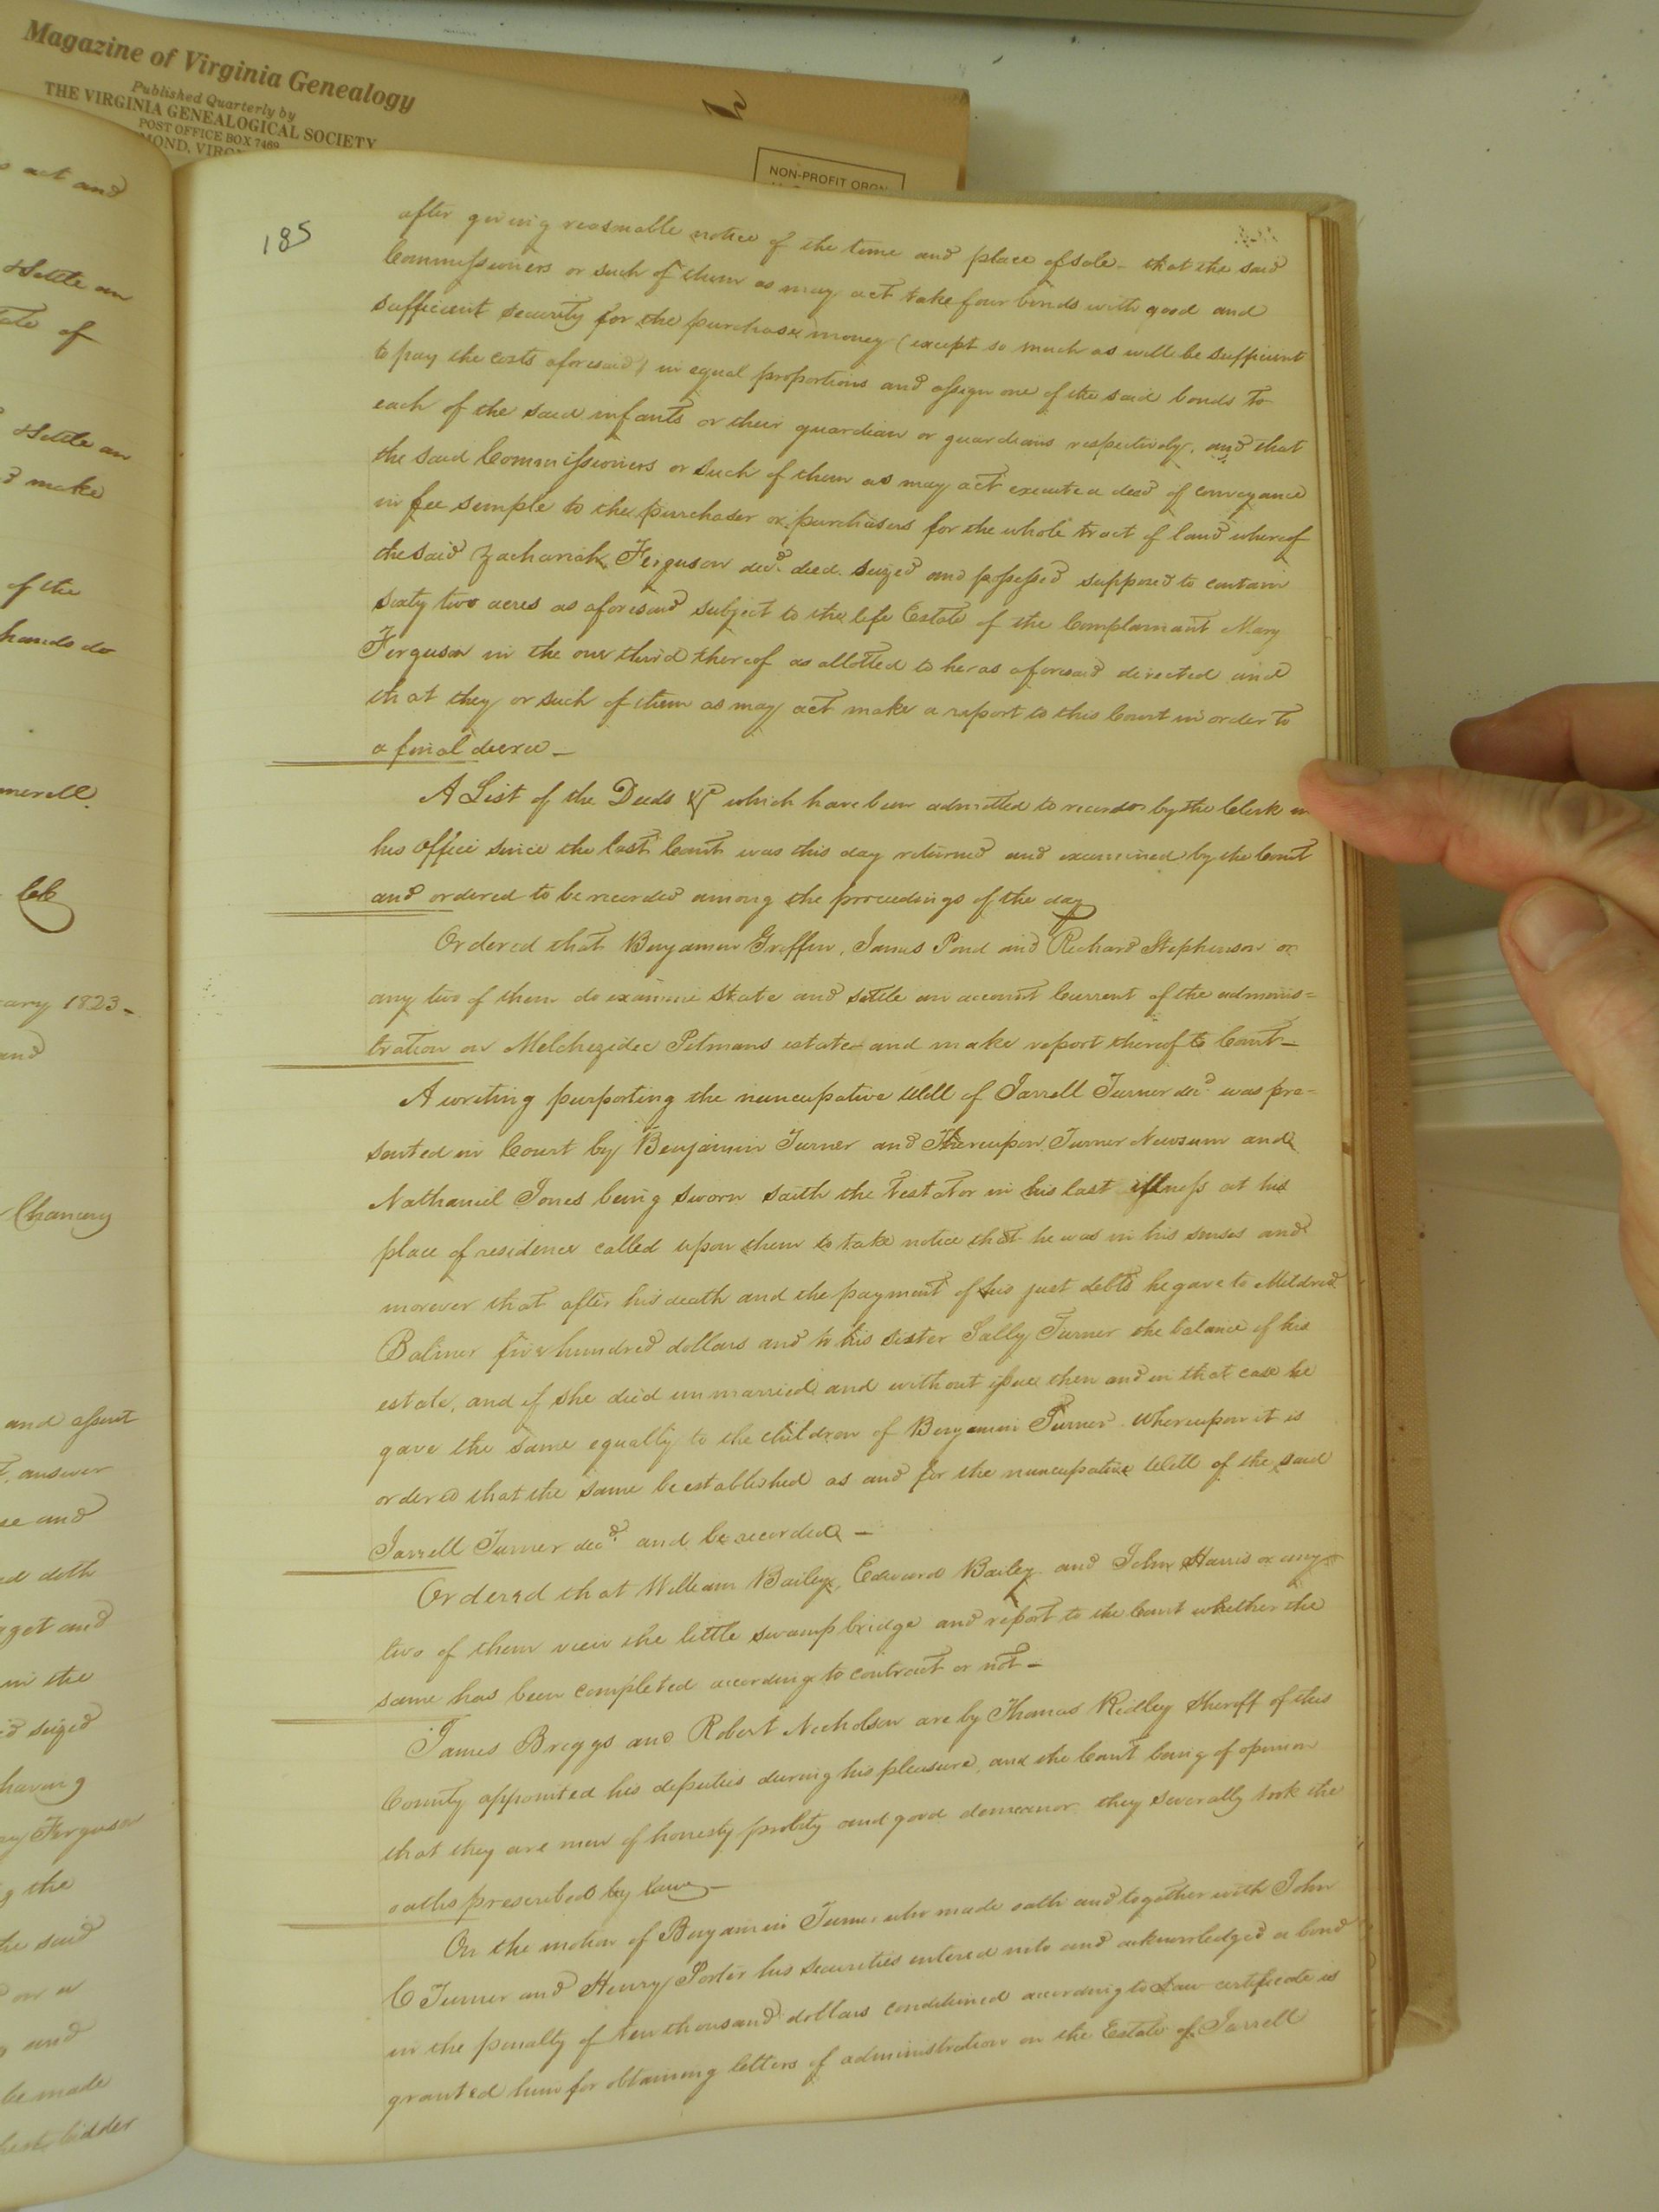 Magazine of Virginia Genealogy
Published Quarterly by
THE VIRGINIA GENEALOGICAL SOCIETY
POST OFFICE BOX 7469
MOND, VIRG
NON-PROFIT ORGN
act and
settle an
of
settle an
make
of the
hands do
merell.
Clk
ary 1823 -
and
Chancery
and assent
answer
se and
ed doth
get and
in the
seized
having
ry Ferguson
g the
the said
on a
and
be made
hest bidder
185
after giving reasonable notice of the time and place of sale - that the said
Commissioners or such of them as may act take four bonds with good and
sufficient security for the purchase money (except so much as will be sufficient
to pay the costs aforesaid) in equal proportions and assign one of the said bonds to
each of the said infants or their guardian or guardians respectively, and that
the said Commissioners or such of them as may act execute a deed of conveyance
in fee simple to the purchaser or purchasers for the whole tract of land whereof
the said Zachariah Ferguson decd. died seized and possessed supposed to contain
sixty two acres as aforesaid subject to the life Estate of the Complainant Mary
Ferguson in the one third thereof as allotted to her as aforesaid directed and
that they or such of them as may act make a report to this Court in order to
a final decree -
A List of the Deeds &c which have been admitted to record by the Clerk in
his office since the last Court was this day returned and examined by the Court
and ordered to be recorded among the proceedings of the day
Ordered that Benjamin Griffin, James Pond and Richard Stephenson or
any two of them do examine state and settle an account Current of the adminis=
tration on Melchizedec Pitmans estate and make report thereof to Court -
A writing purporting the nuncupative Will of Jarrell Turner decd. was pre-
sented in Court by Benjamin Turner and Thereupon Turner Newsum and
Nathaniel Jones being sworn saith the testator in his last illness at his
place of residence called upon them to take notice that he was in his senses and
morever that after his death and the payment of his just debts he gave to Mildred
Balmer five hundred dollars and to his sister Sally Turner the balance of his
estate, and if she died unmarried and without issue then and in that case he
gave the same equally to the children of Benjamin Turner. Whereupon it is
ordered that the same be established as and for the nuncupative Will of the said
Jarrell Turner decd. and be recorded -
Ordered that William Bailey, Edward Bailey and John Harris or any
two of them view the little swamp bridge and report to the Court whether the
same has been completed according to contract or not -
James Briggs and Robert Nicholson are by Thomas Ridley Sheriff of this
County appointed his deputies during his pleasure, and the Court being of opinion
that they are men of honesty probity and good demeanor they severally took the
oaths prescribed by law -
On the motion of Benjamin Turner who made oath and together with John
C Turner and Henry Porter his securities entered into and acknowledged a bond
in the penalty of ten thousand dollars conditioned according to Law certificate is
granted him for obtaining letters of administration on the Estate of Jarrell